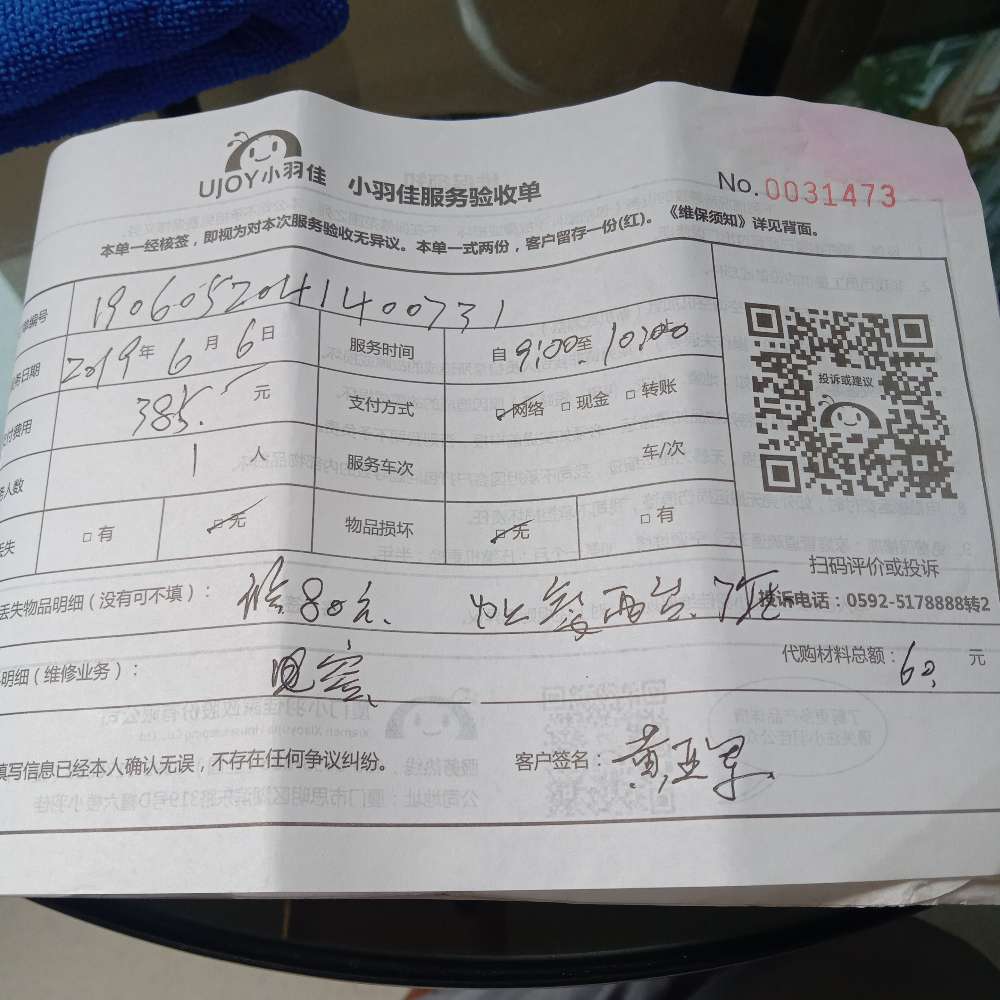 UJOY小羽佳 小羽佳服务验收单 No.0031473
本单一经核签，即视为对本次服务验收无异议。本单一式两份，客户留存一份(红)。《维保须知》详见背面。
编号 1906052041400731
务日期 2019年6月6日 服务时间 自9:00至10:00
付费用 385.元 支付方式 网络 现金 转账
务人数 1人 服务车次 车/次
丢失 有 无 物品损坏 无 有
投诉或建议
扫码评价或投诉
投诉电话：0592-5178888转2
丢失物品明细（没有可不填）： 80元. 两台.
明细（维修业务）： 代购材料总额：60.元
填写信息已经本人确认无误，不存在任何争议纠纷。 客户签名：黄亚军